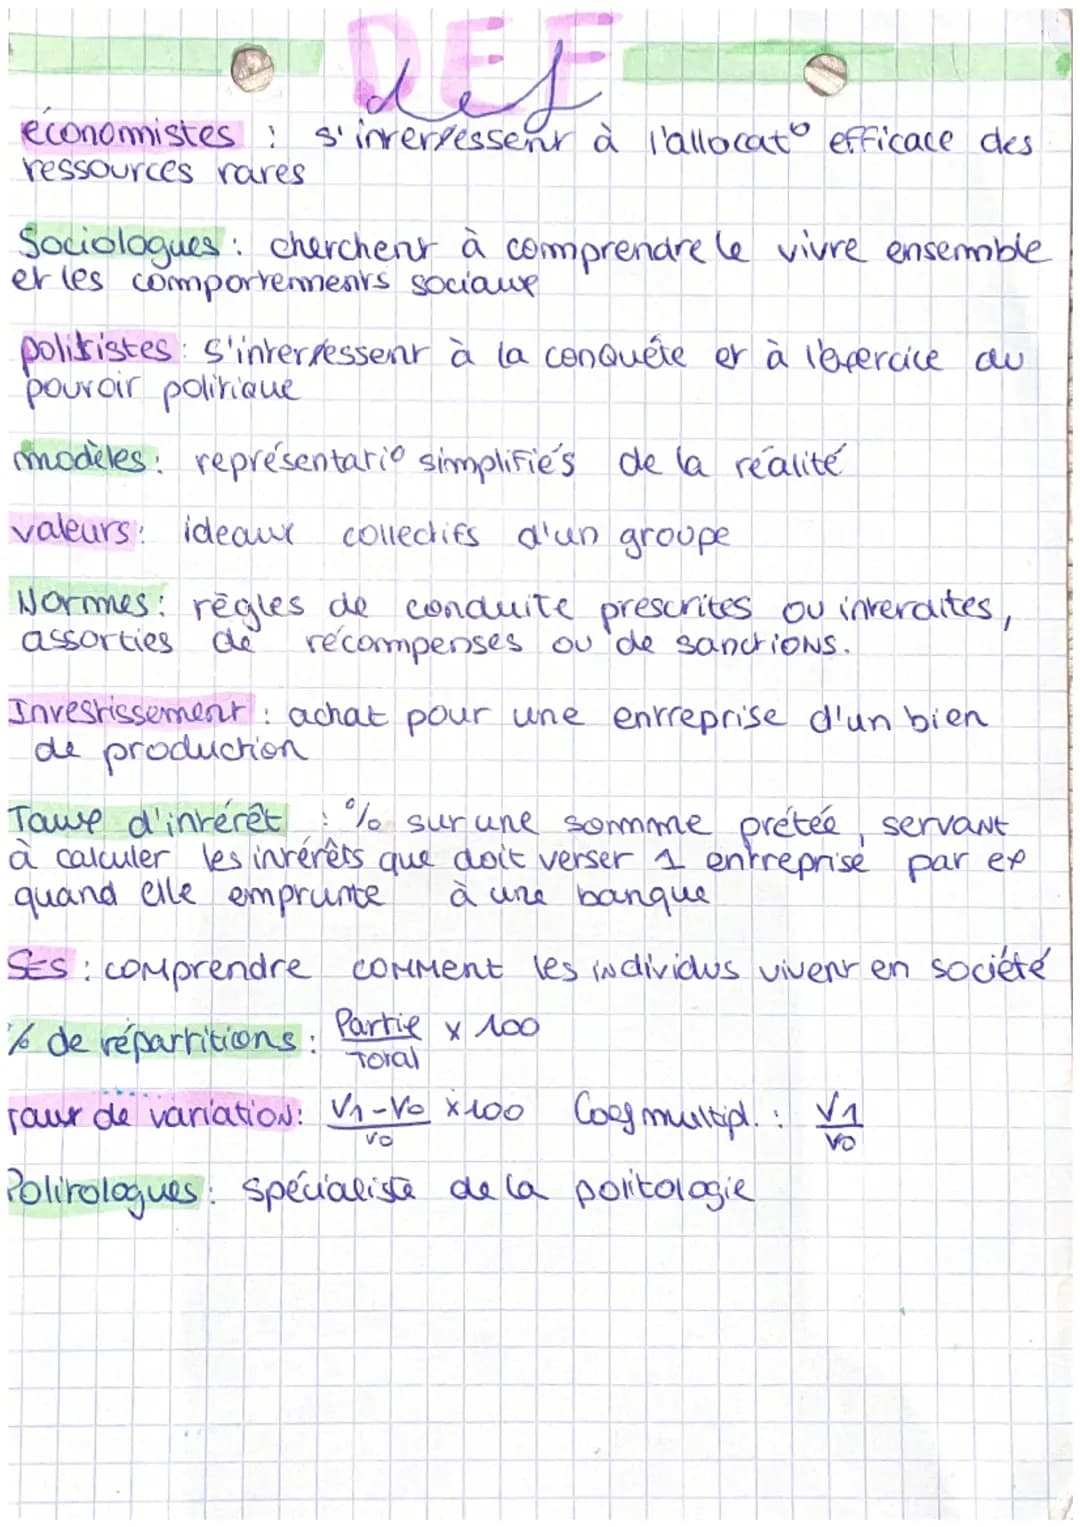 DEF
def
économistes : s'interressent à l'allocat° efficace des
ressources rares
Sociologues : cherchent à comprendre le vivre ensemble
et les comportements sociaux
politistes : s'interressent à la conquête et à l'exercice du
pouvoir politique
modèles : représentatio simplifiés de la réalité
valeurs : ideaux collectifs d'un groupe
Normes : règles de conduite prescrites ou interdites,
assorties de récompenses ou de sanctions.
Investissement : achat pour une entreprise d'un bien
de production
Taux d'intérêt : % sur une somme prétée, servant
à calculer les intérêts que doit verser 1 entreprise par ex
quand elle emprunte à une banque
SES : comprendre comment les individus vivent en société
% de répartitions : Partie / Total x 100
Taux de variation : V1-V0 / V0 x 100 Coef multipl. : V1 / V0
Politologues : spécialiste de la politologie